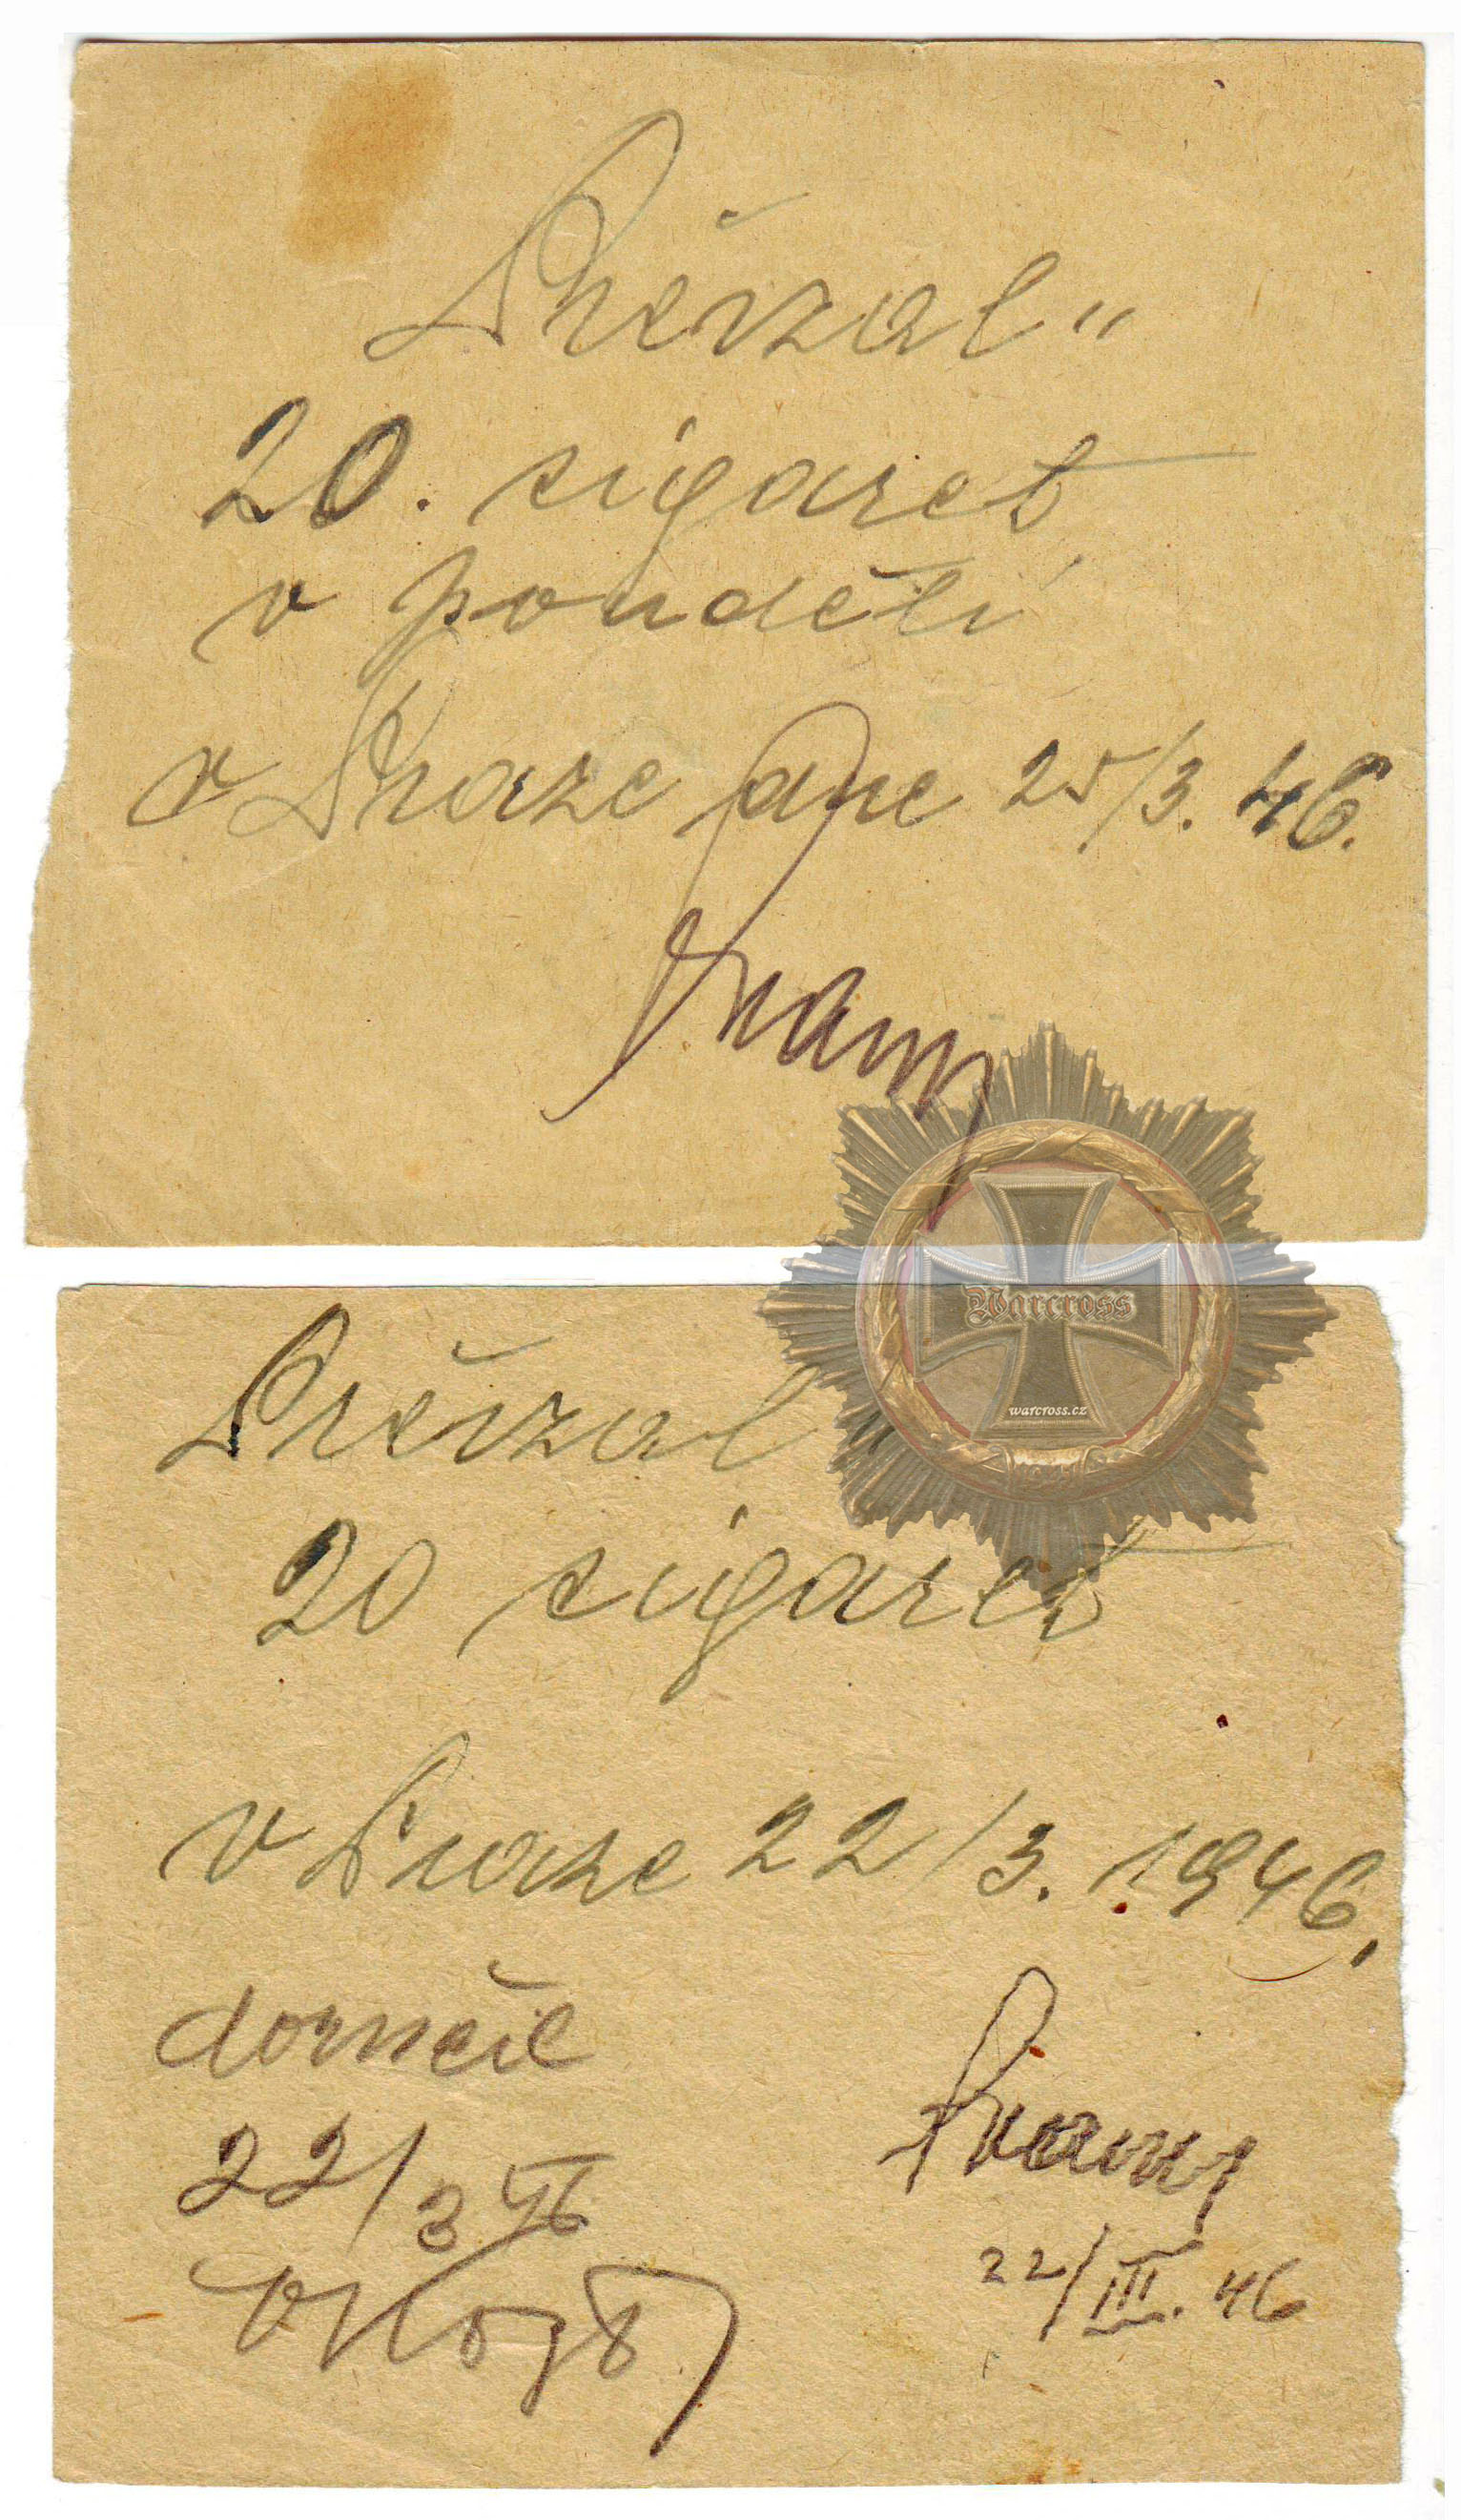 Převzal"
20. cigaret
v pondělí
v Praze dne 25/3. 46.
Frank
Warcross
warcross.cz
Převzal "
20 cigaret
v Praze 22/3. 1946.
doručil
22/3 46
22/III. 46